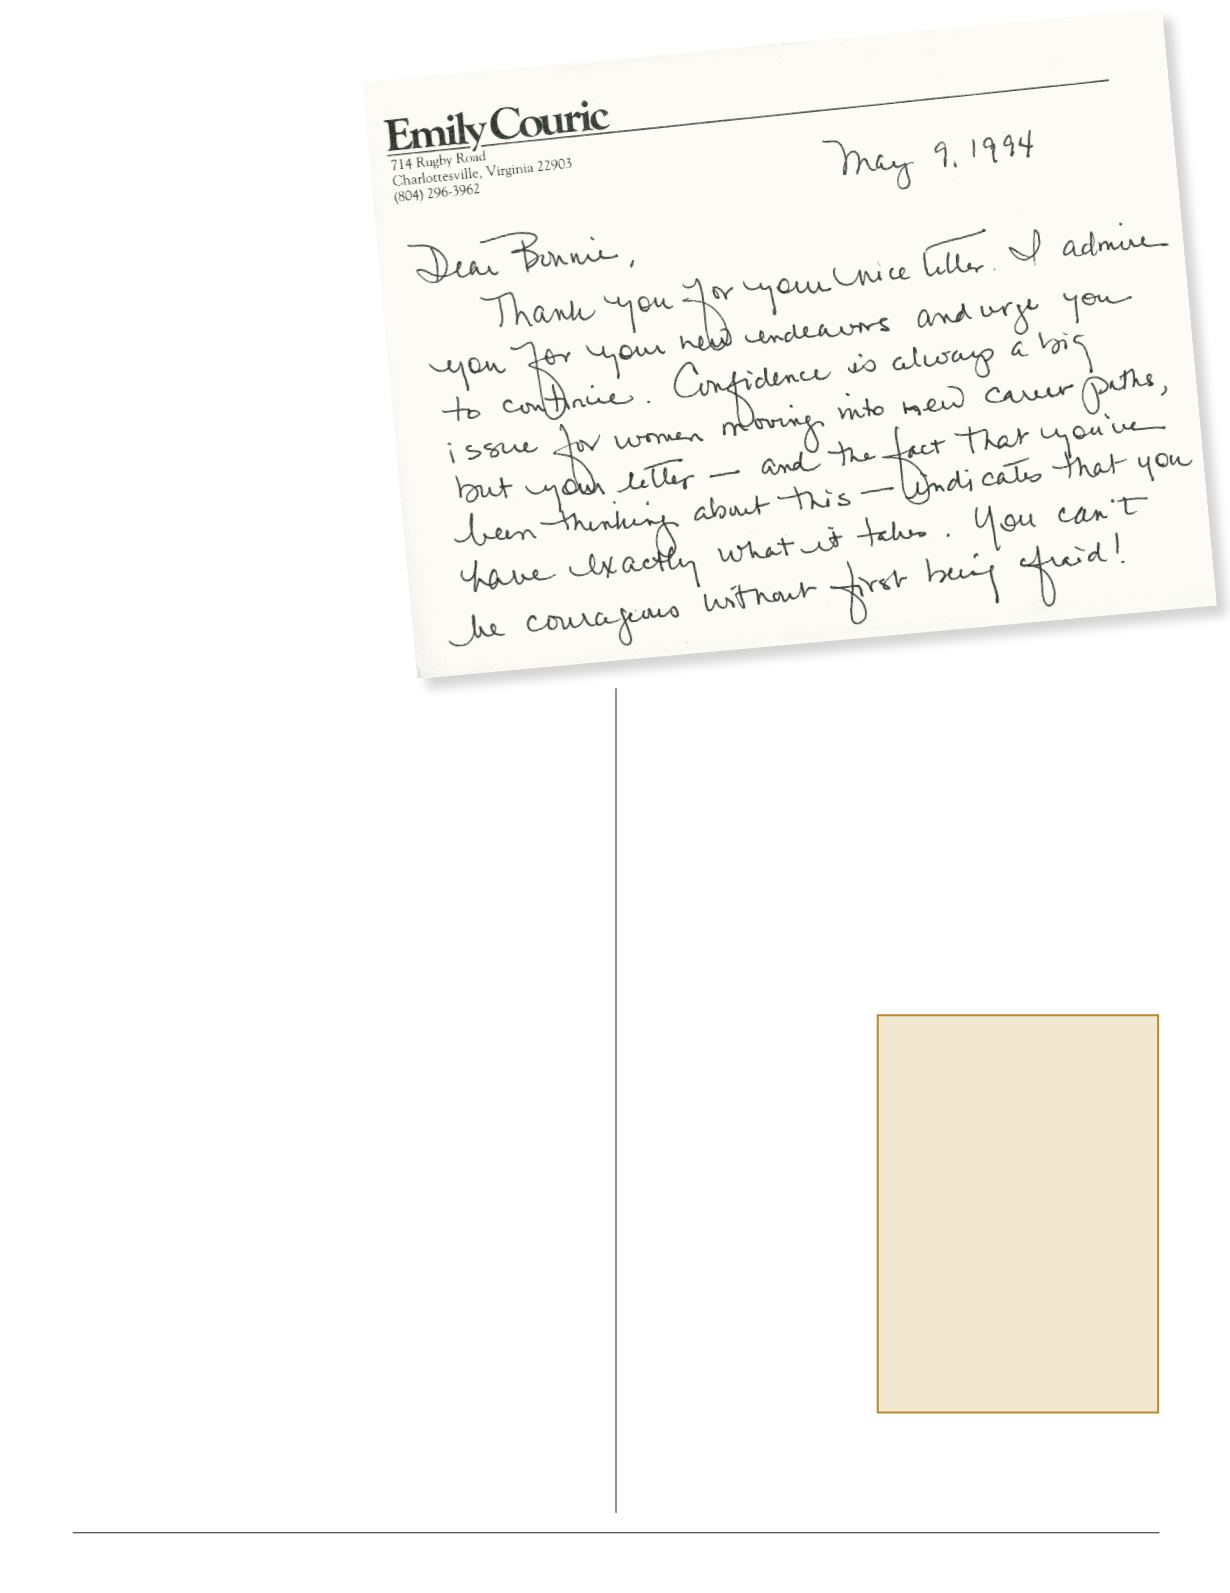 Emily Couric
714 Rugby Road
Charlottesville, Virginia 22903
(804) 296-3962
May 9, 1994
Dear Bonnie,
Thank you for your nice letter. I admire
you for your new endeavors and urge you
to continue. Confidence is always a big
issue for women moving into new career paths,
but your letter — and the fact that you've
been thinking about this — indicates that you
have exactly what it takes. You can't
be courageous without first being afraid!